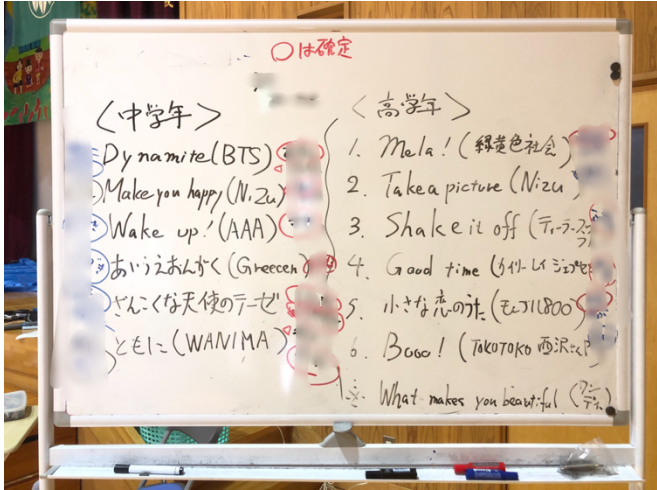 ○は確定
<中学年>
Dynamite(BTS)
Make you happy(Nizu)
Wake up!(AAA)
あいうえおんがく(Greeeen)
ざんこくな天使のテーゼ
ともに(WANIMA)
<高学年>
1. Mela!(緑黄色社会)
2. Take a picture(Nizu
3. Shake it off(テーラースフ
4. Good time(カイリーレイジェプセ
5. 小さな恋のうた(モンゴル800)
6. Booo!(TOKOTOKO 西沢さんP
What makes you beautiful(ワンデ